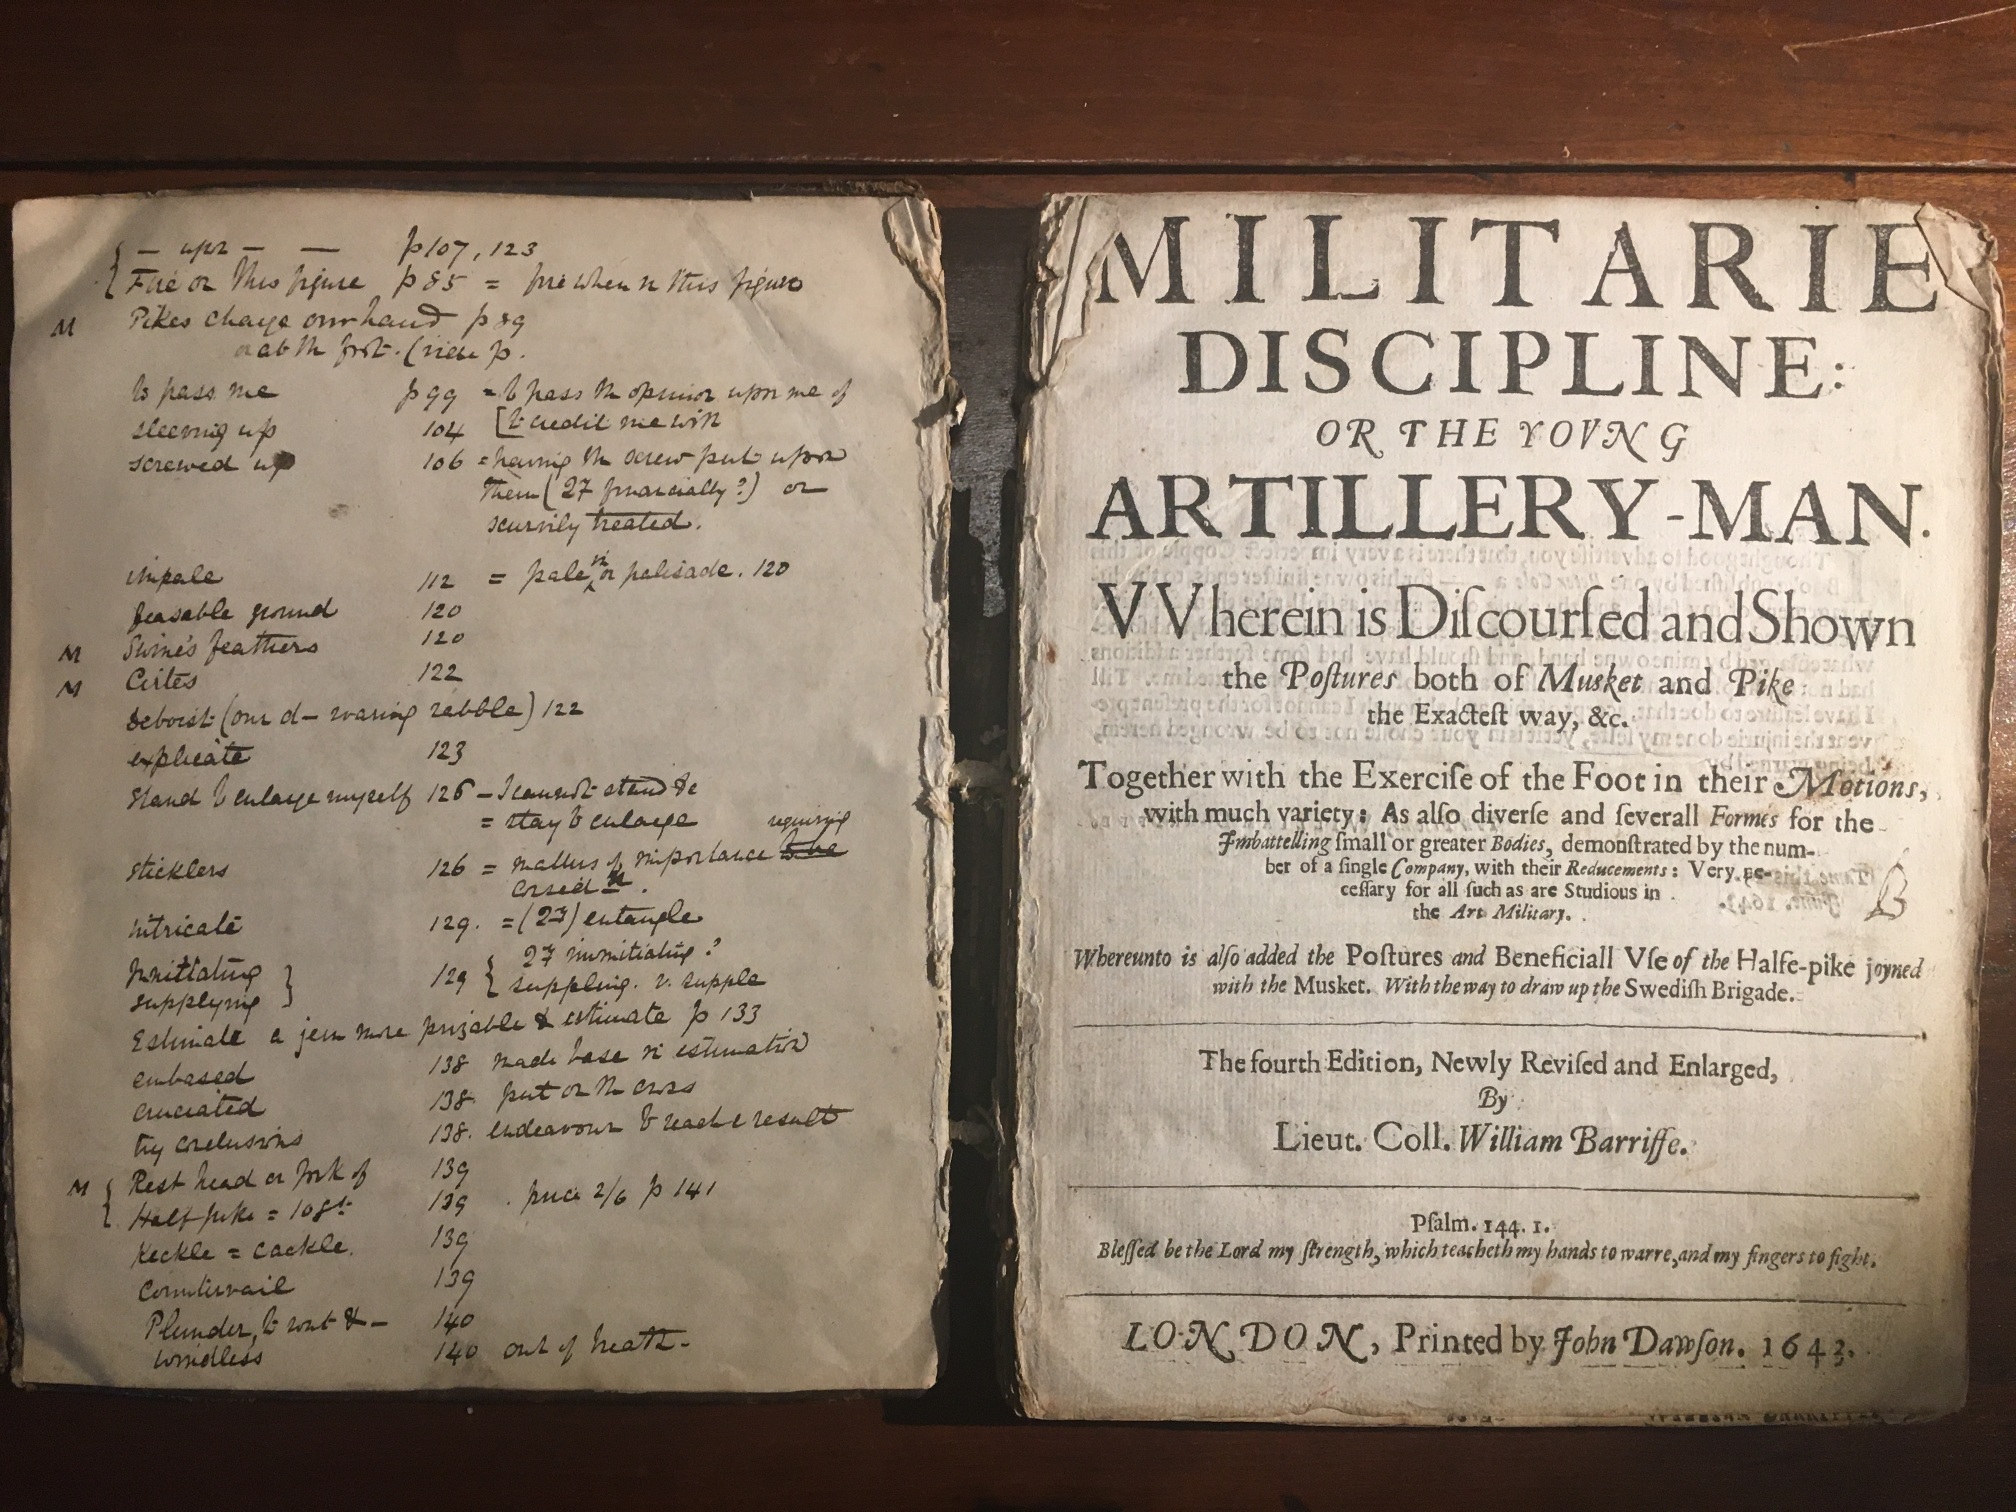 — upon — — p 107, 123
Fire on this figure p 85 = fire when in this figure
M Pikes charge overhand p 89
or at the foot. (vide p.
to pass me p 99 = to pass the opinion upon me of
[to credit me with
sleeving up 104
screwed up 106 = having the screw put upon
them ( financially?) or
scurvily treated.
impale 112 = pale in or palisade. 120
feasable ground 120
M Swine's feathers 120
M Cirtes 122
deboist (our d— roaring rabble) 122
explicate 123
Stand to enlarge myself 126 — I cannot stand to
= stay to enlarge
sticklers 126 = matters of importance requiring
intricate 129. = entangle
immitiating?
supplying } 129 { suppling. v. supple
Estimate a jem more prizable & estimate p 133
embased 138 made base in estimation
cruciated 138. put on the cross
try conclusions 138. endeavour to reach a result
M { Rest head or fork of 139
Half pike = 139 . price 2/6 p 141
Keckle = cackle. 139
Countervail 139
Plunder, to rout & — 140
windless 140 out of breath —
MILITARIE
DISCIPLINE:
OR THE YOVNG
ARTILLERY-MAN.
VVherein is Diſcourſed and Shown
the Poſtures both of Musket and Pike
the Exacteſt way, &c.
Together with the Exerciſe of the Foot in their Motions,
with much variety: As alſo diverſe and ſeverall Formes for the
Imbattelling ſmall or greater Bodies, demonſtrated by the num-
ber of a ſingle Company, with their Reducements: Very ne-
ceſſary for all ſuch as are Studious in
the Art Military.
B
Whereunto is alſo added the Poſtures and Beneficiall Vſe of the Halfe-pike joyned
with the Musket. With the way to draw up the Swediſh Brigade.
The fourth Edition, Newly Reviſed and Enlarged,
By
Lieut. Coll. William Barriffe.
Pſalm. 144. 1.
Bleſſed be the Lord my ſtrength, which teacheth my hands to warre, and my fingers to fight.
LONDON, Printed by John Dawſon. 1643.